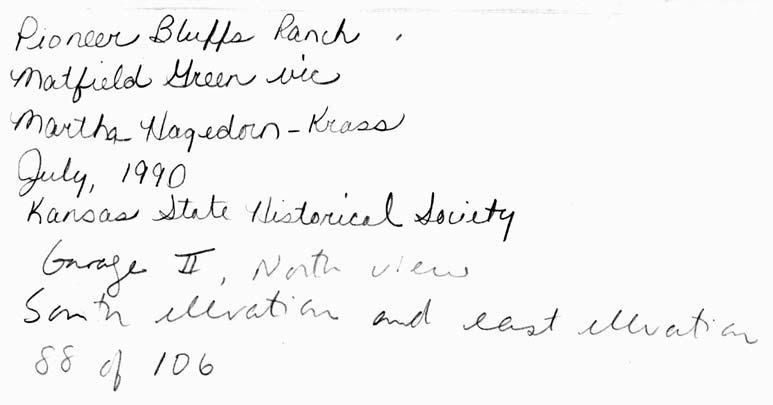 Pioneer Bluffs Ranch
Matfield Green vic
Martha Hagedorn-Krass
July, 1990
Kansas State Historical Society
Garage II, North view
South elevation and east elevation
88 of 106